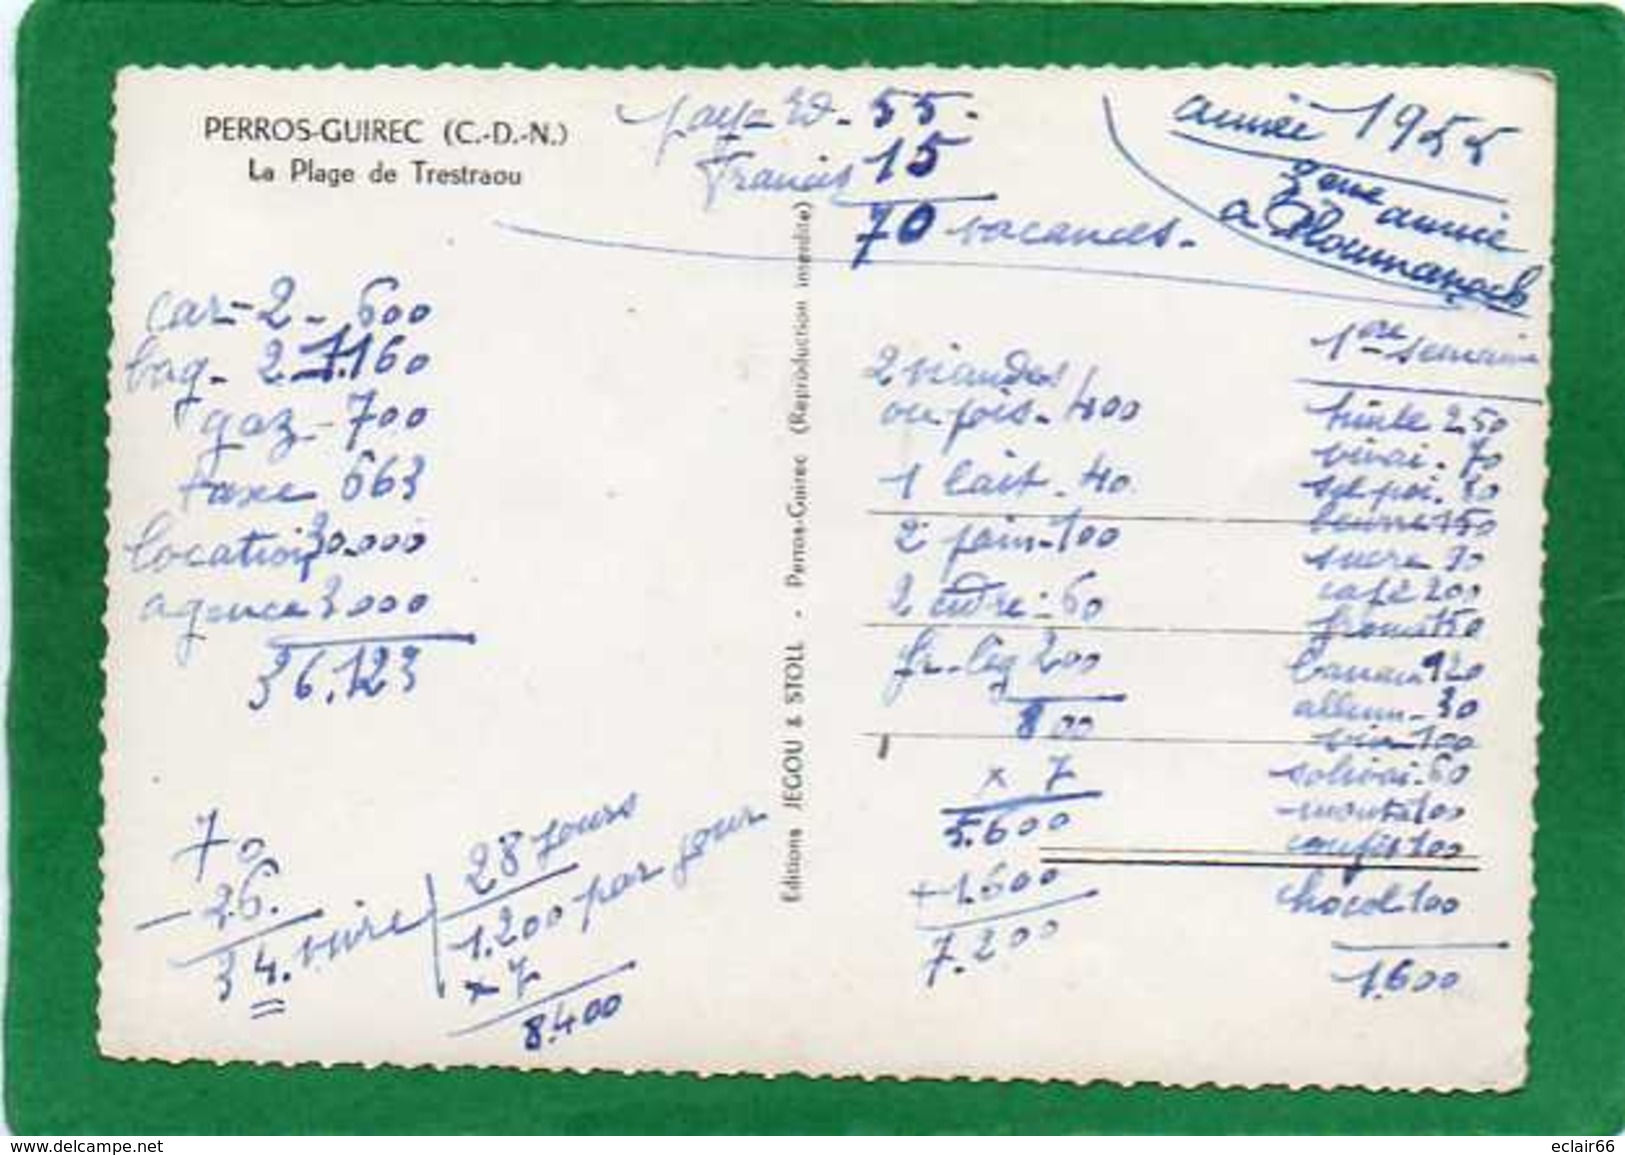 PERROS-GUIREC (C.-D.-N.)
La Plage de Trestraou
paye Ed - 55.
Francis 15
70 vacances.
année 1955
3eme année
a Ploumanach
car - 2 - 600
bag - 2 - 1.160
gaz - 700
taxe 663
location 30.000
agence 3000
36.123
70
- 26.
34. vivre
28 jours
1.200 par jour
x 7
8.400
Editions JEGOU & STOLL - Perros-Guirec (Reproduction interdite)
2 viandes
ou pois. 400
1 lait - 40.
2 pain - 100
2 cidre : 60
fr - leg 200
800
x 7
5.600
+ 1.600
7.200
1ere semaine
huile 250
vinai. 70
sel poi. 80
beurre 150
sucre 90
café 200
froma 150
banan 120
allum - 30
vin 100
100
confit 100
chocol 100
1.600
delcampe.net
eclair66